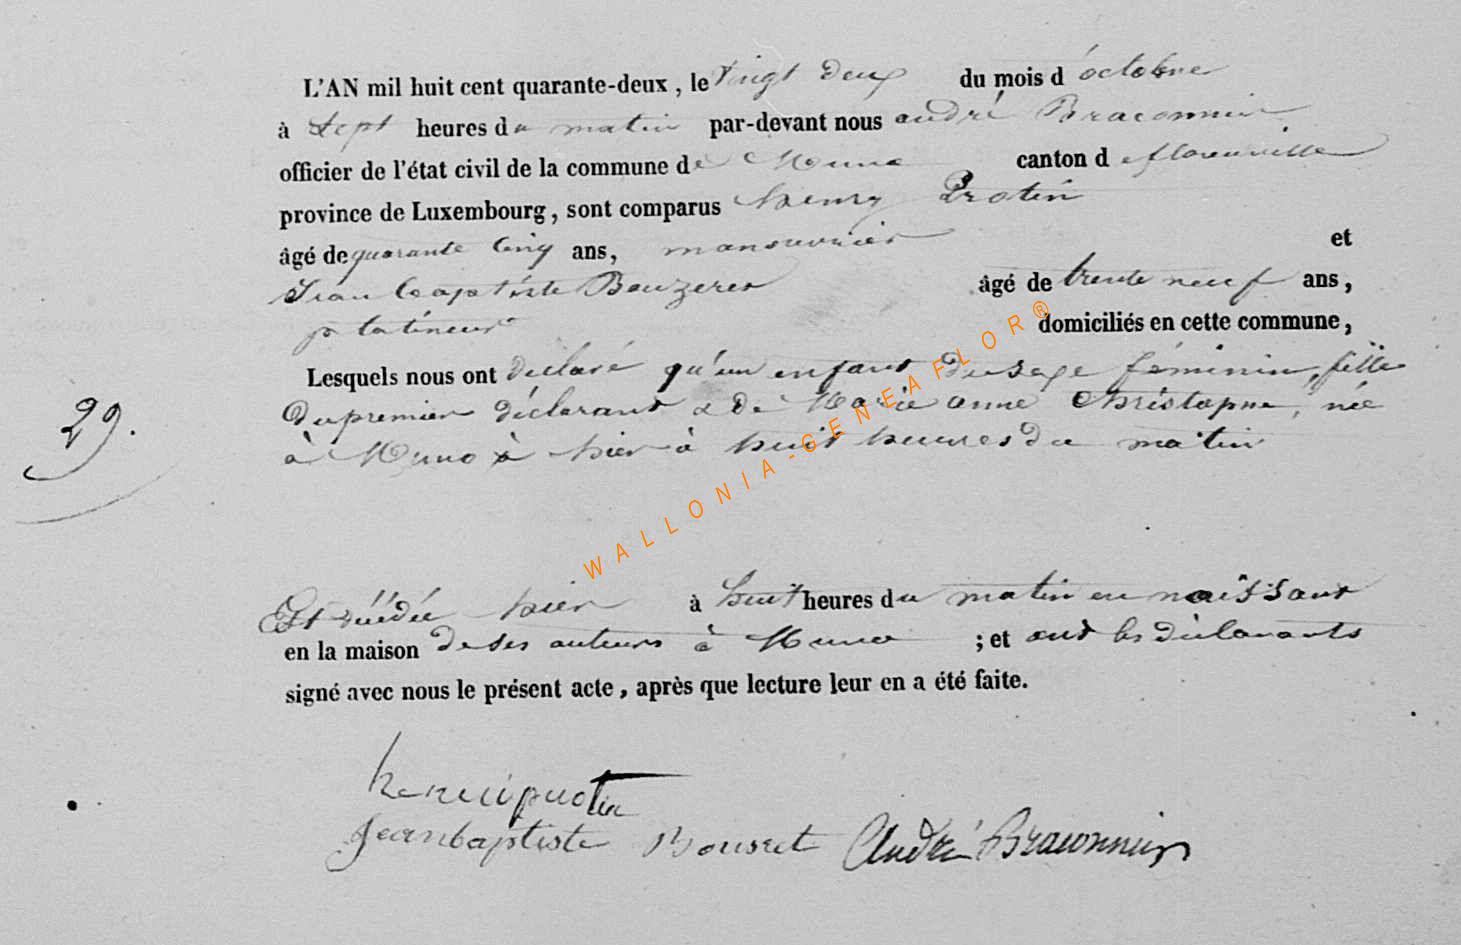 L'AN mil huit cent quarante-deux, le vingt deux du mois d'octobre
à sept heures du matin par-devant nous andré Braconnier
officier de l'état civil de la commune de Muno canton de florenville
province de Luxembourg, sont comparus henry Protin
âgé de quarante Cinq ans, manouvrier et
Jean baptiste âgé de trente neuf ans,
domiciliés en cette commune,
Lesquels nous ont declaré qu'un enfant du sexe féminin, fille
Du premier déclarant & De Marie anne Christophe, née
29.
à Muno à hier à huit heures du matin
Est décédée hier à huit heures du matin en naissant
en la maison de ses auteurs à Muno ; et ont les déclarants
signé avec nous le présent acte, après que lecture leur en a été faite.
henri protin
Jean baptiste Bousret André Braconnier
WALLONIA-GENEAFLOR®